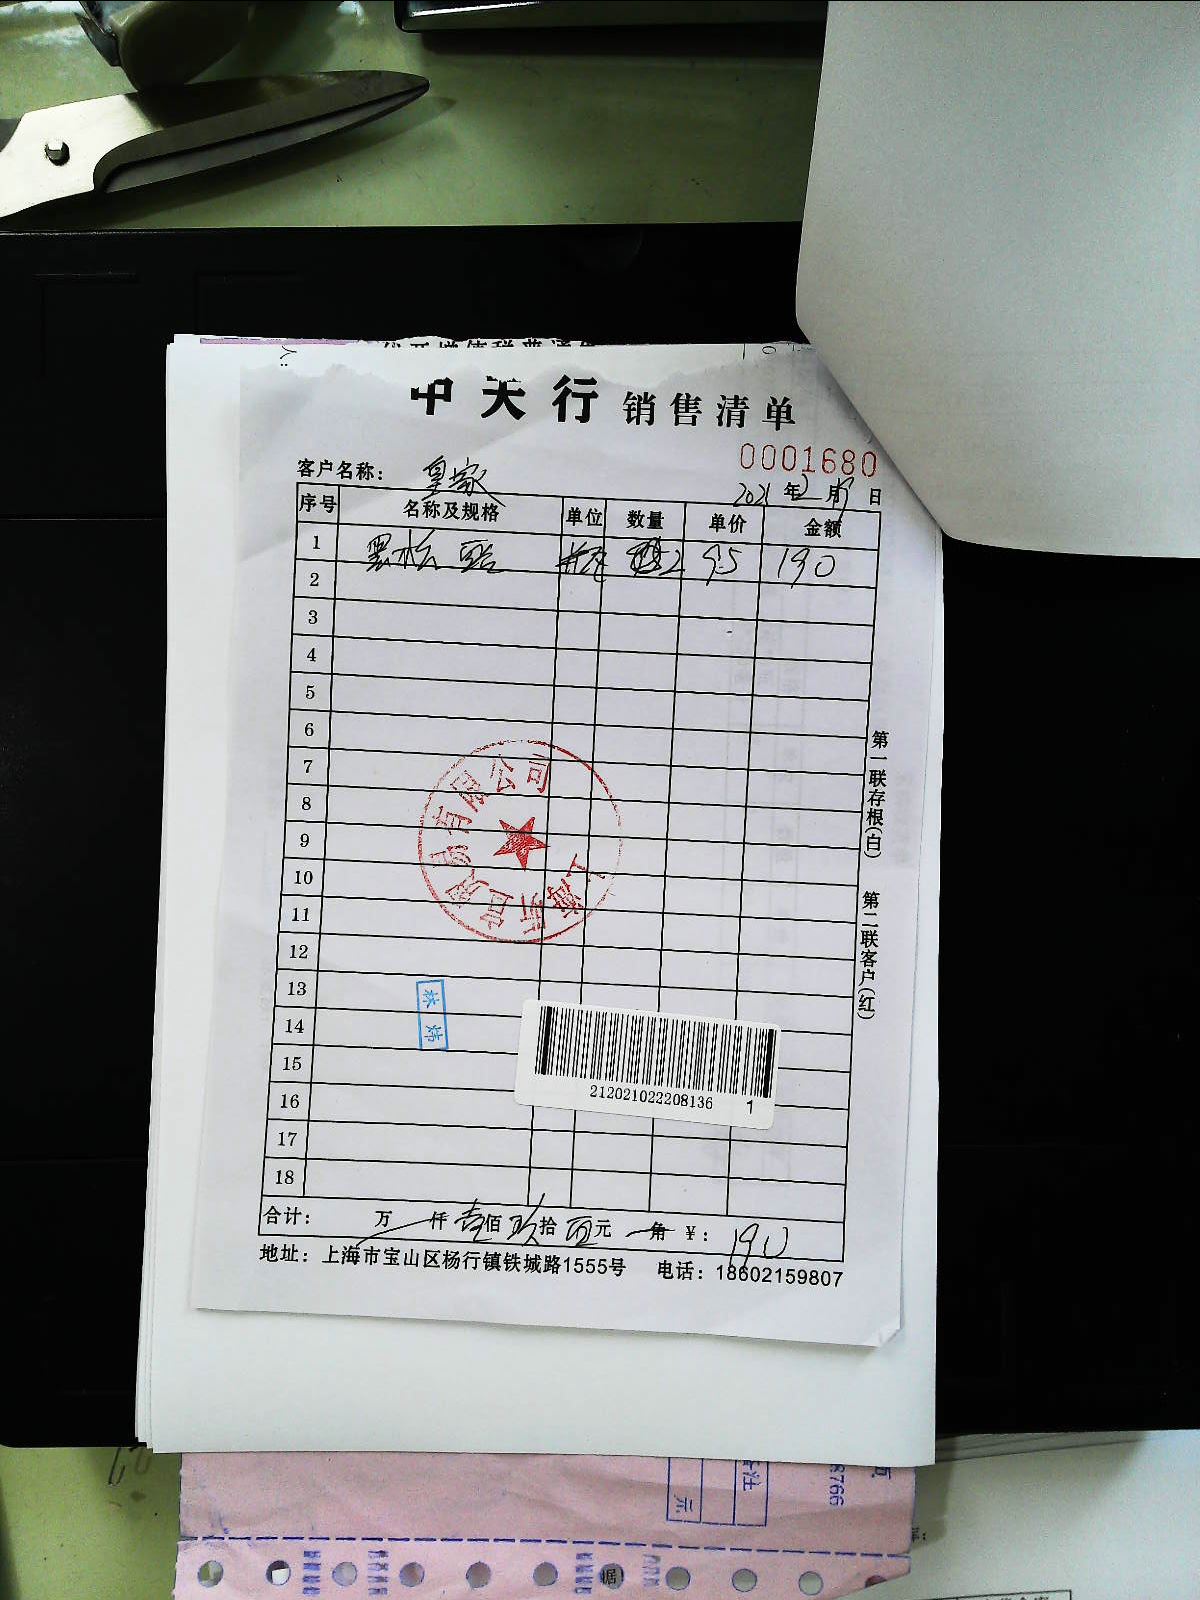 中天行 销售清单
0001680
客户名称： 皇家
2021 年 2 月 19 日
序号 名称及规格 单位 数量 单价 金额
1 黑松露 瓶 2 95 190
2
3
4
5
6
7
8
9
10
11
12
13
14
15
16
17
18
合计： 万 仟 壹佰 玖拾 元 角 ￥： 190
地址：上海市宝山区杨行镇铁城路1555号 电话：18602159807
第一联存根(白) 第二联客户(红)
贸易有限公司
212021022208136 1
备注
元
8766
据